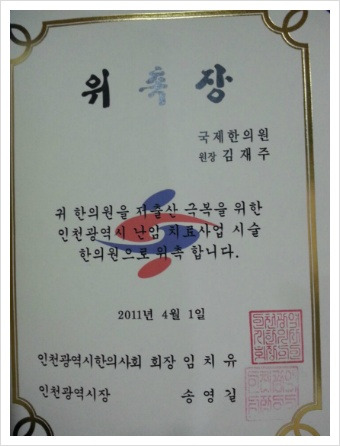 위 촉 장
국제한의원
원장 김재주
귀 한의원을 저출산 극복을 위한
인천광역시 난임 치료사업 시술
한의원으로 위촉 합니다.
2011년 4월 1일
인천광역시한의사회 회장 임 치 유
인천광역시장 송 영 길